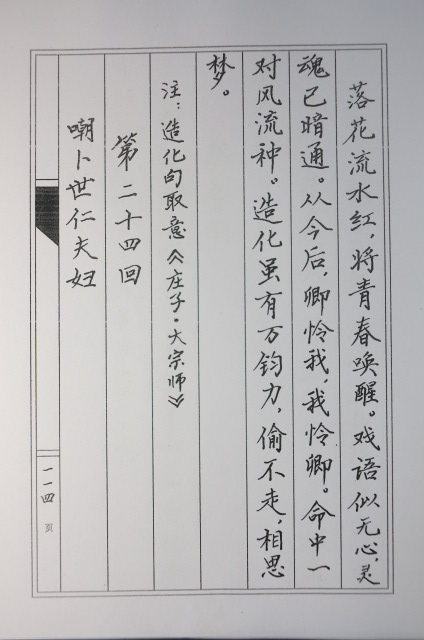 落花流水红，将青春唤醒。戏语似无心，灵
魂已暗通。从今后，卿怜我，我怜卿。命中一
对风流种。造化虽有万钧力，偷不走，相思
梦。
注：造化句取意《庄子·大宗师》
第二十四回
嘲卜世仁夫妇
一一四 页